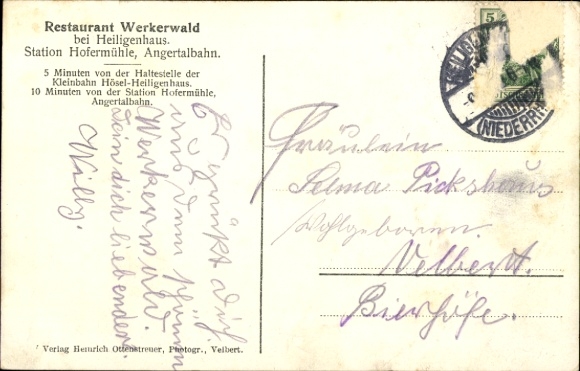 Restaurant Werkerwald
bei Heiligenhaus.
Station Hofermühle, Angertalbahn.
5 Minuten von der Haltestelle der
Kleinbahn Hösel-Heiligenhaus.
10 Minuten von der Station Hofermühle,
Angertalbahn.
Es grüßt dich
aus dem schönen
Werkerwald.
Dein dich liebender
Willy.
Fräulein
Selma Pickshaus
Wohlgeboren.
Velbert.
Bierhöfe.
5
(NIEDERRH
Verlag Heinrich Ottenstreuer, Photogr., Velbert.